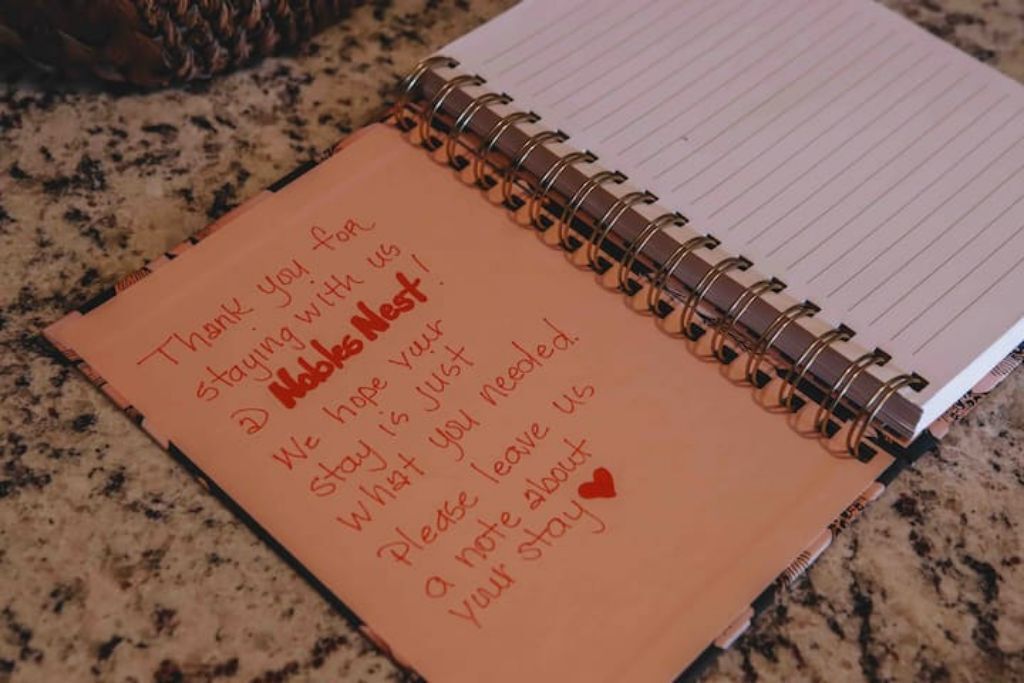 Thank you for
staying with us
@ Nobles Nest!
We hope your
stay is just
what you needed.
Please leave us
a note about
your stay ♥